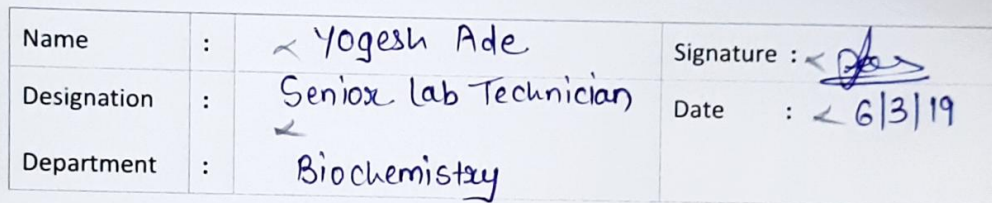 Name : Yogesh Ade Signature :
Designation : Senior Lab Technician Date : 6/3/19
Department : Biochemistry